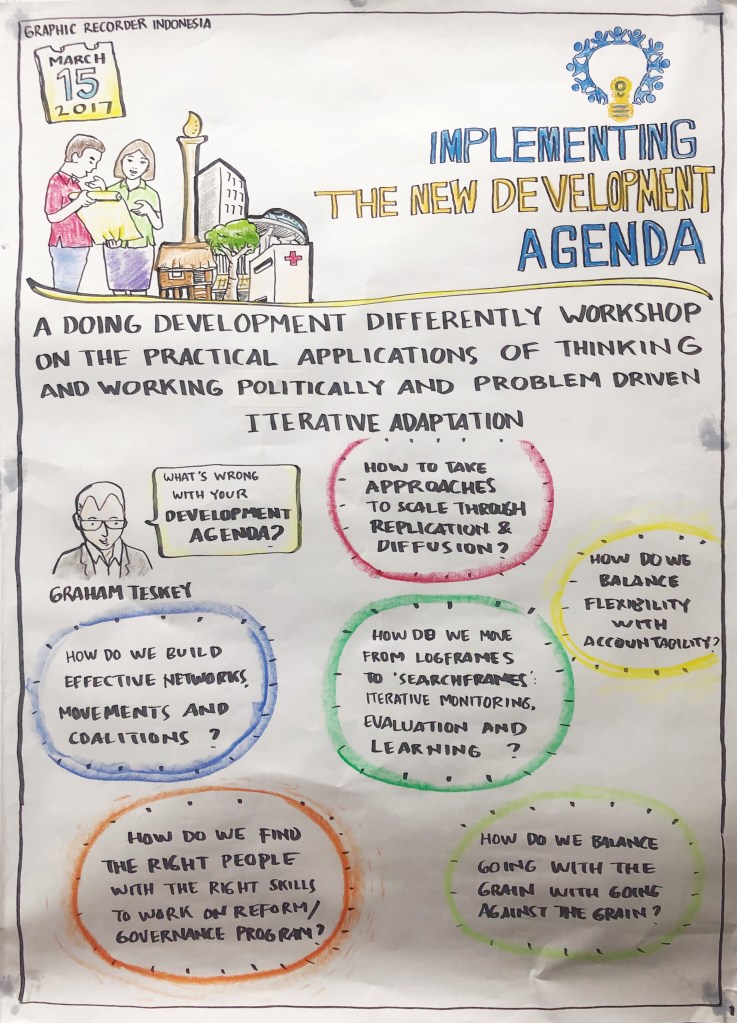 GRAPHIC RECORDER INDONESIA
MARCH
15
2017
IMPLEMENTING
THE NEW DEVELOPMENT
AGENDA
A DOING DEVELOPMENT DIFFERENTLY WORKSHOP
ON THE PRACTICAL APPLICATIONS OF THINKING
AND WORKING POLITICALLY AND PROBLEM DRIVEN
ITERATIVE ADAPTATION
WHAT'S WRONG
WITH YOUR
DEVELOPMENT
AGENDA?
GRAHAM TESKEY
HOW TO TAKE
APPROACHES
TO SCALE THROUGH
REPLICATION &
DIFFUSION?
HOW DO WE
BALANCE
FLEXIBILITY
WITH
ACCOUNTABILITY?
HOW DO WE BUILD
EFFECTIVE NETWORKS,
MOVEMENTS AND
COALITIONS ?
HOW DO WE MOVE
FROM LOGFRAMES
TO 'SEARCHFRAMES':
ITERATIVE MONITORING,
EVALUATION AND
LEARNING ?
HOW DO WE FIND
THE RIGHT PEOPLE
WITH THE RIGHT SKILLS
TO WORK ON REFORM/
GOVERNANCE PROGRAM?
HOW DO WE BALANCE
GOING WITH THE
GRAIN WITH GOING
AGAINST THE GRAIN?